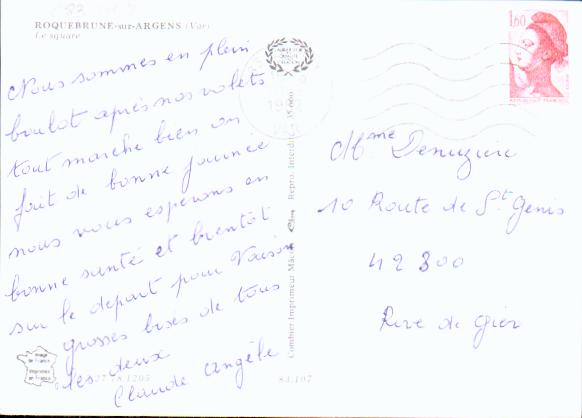 ROQUEBRUNE-sur-ARGENS (Var)
Le square
Nous sommes en plein
boulot après nos volets
tout marche bien on
fait de bonne journee
nous vous esperons en
bonne santé et bientôt
sur le depart pour Vaison
grosses bises de tous
les deux
Claude Angèle
Combier Imprimeur Mâcon
Repro. Interdite
Image de France
Imprimées en France
27.78.1205
84.107
1,60
REPUBLIQUE FRANÇAISE
Mme Denuziere
10 Route de St Genis
42800
Rive de Gier